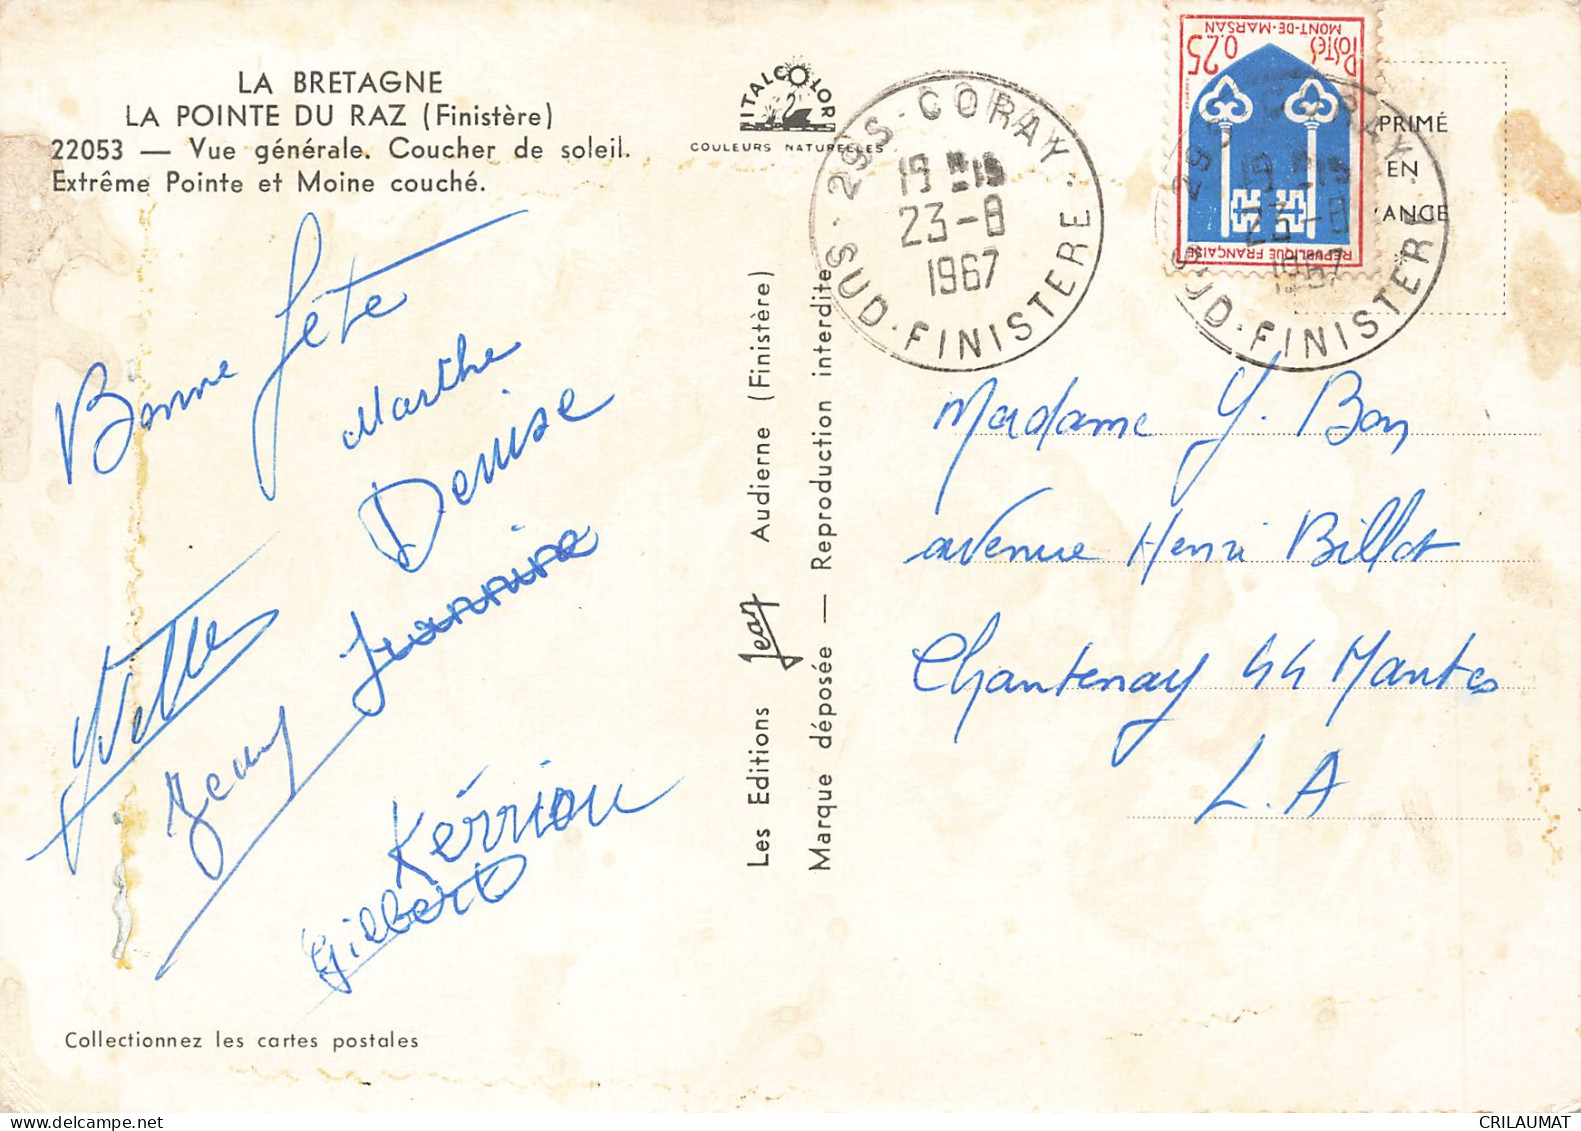 LA BRETAGNE
LA POINTE DU RAZ (Finistère)
22053 — Vue générale. Coucher de soleil.
Extrême Pointe et Moine couché.
Bonne fête
Marthe
Denise
Jeannine
Yvette
Jeany
Kérriou
Gilbert
Collectionnez les cartes postales
ITALCOLOR
COULEURS NATURELLES
Les Editions Jean Audierne (Finistère)
Marque déposée — Reproduction interdite
29S · CORAY ·
19 H 15
23-8
1967
SUD-FINISTERE
POSTES 0,25
MONT-DE-MARSAN
REPUBLIQUE FRANÇAISE
29S CORAY ·
19 H 15
23-8
1967
SUD-FINISTERE
PRIMÉ
EN
ANCE
Madame Y. Bon
avenue Henri Billot
Chantenay 44 Nantes
L.A
CRILAUMAT